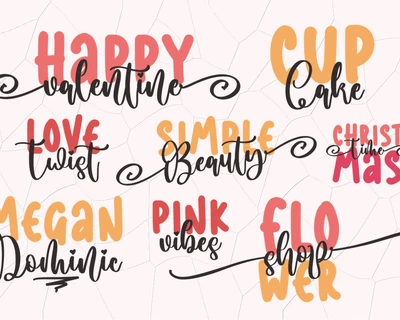 HAPPY
valentine
CUP
Cake
LOVE
twist
SIMPLE
Beauty
CHRIST
time
Mas
MEGAN
Dominic
PINK
vibes
FLO
shop
WER